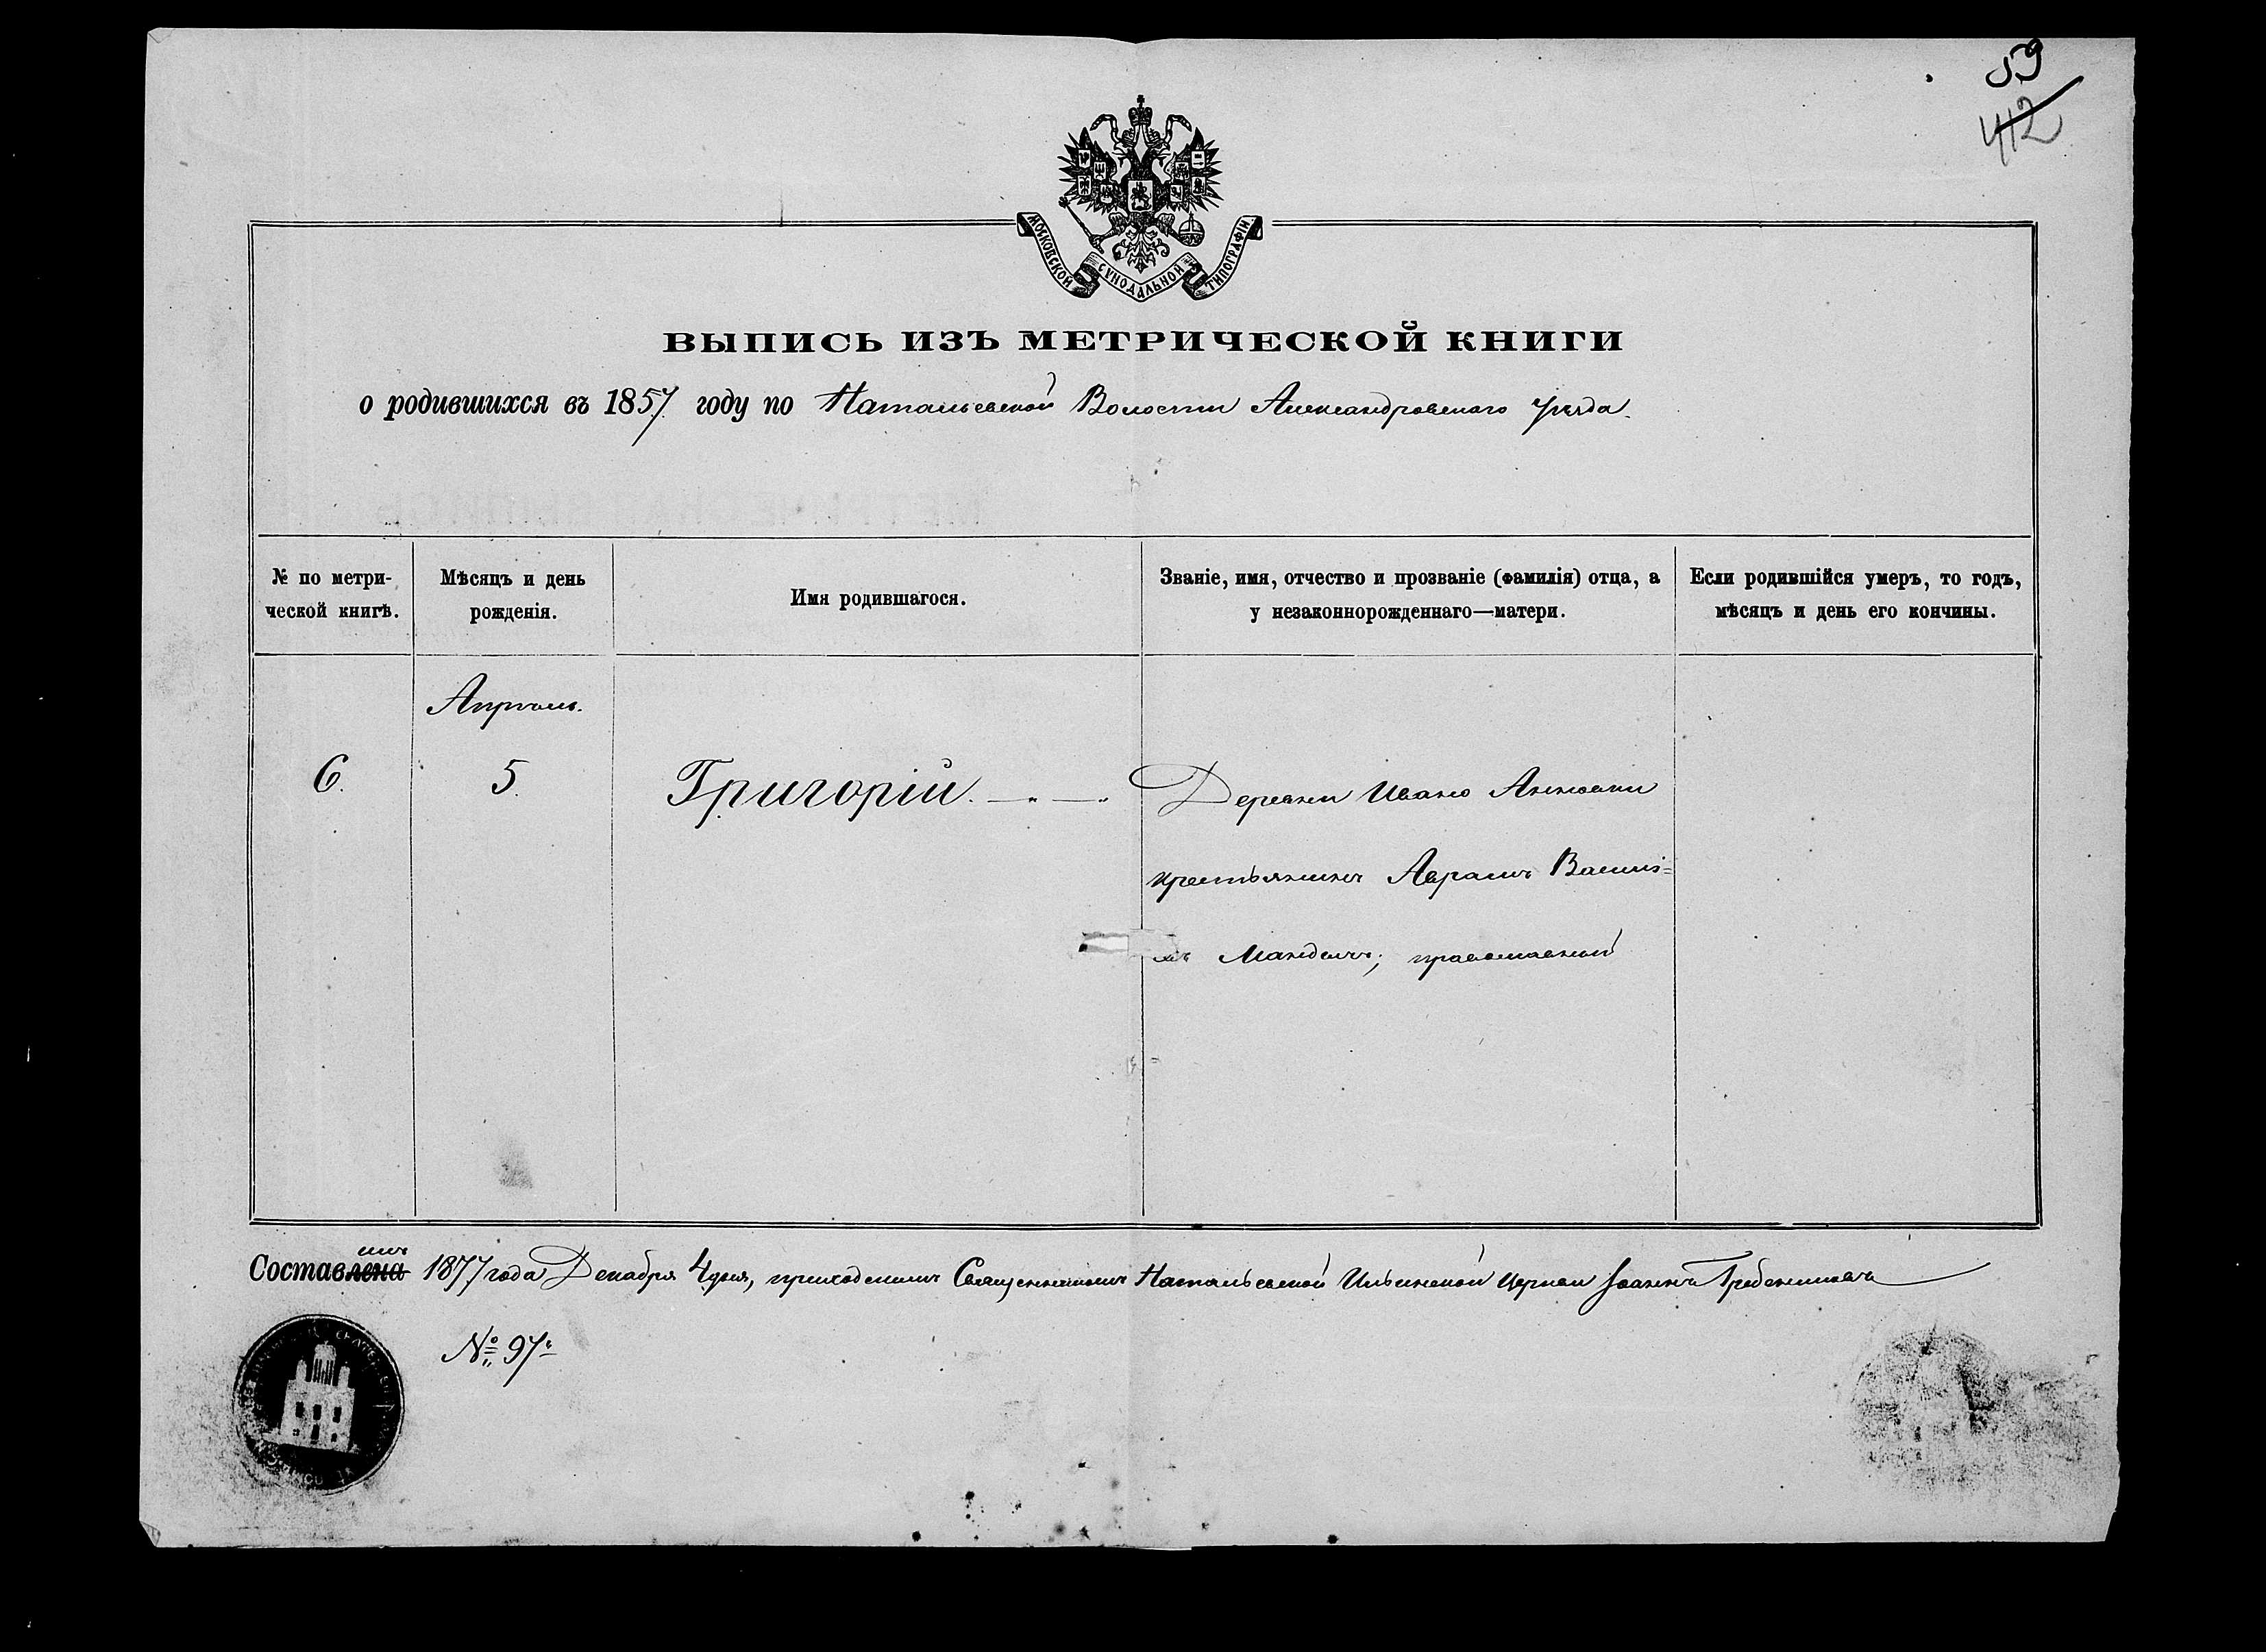 59
412
МОСКОВСКОЙ СУНОДАЛЬНОЙ ТИПОГРАФІИ.
ВЫПИСЬ ИЗЪ МЕТРИЧЕСКОЙ КНИГИ
о родившихся въ 1857 году по Натальевской Волости Александровскаго Уѣзда.
№ по метри-
ческой книгѣ.
Мѣсяцъ и день
рожденія.
Имя родившагося.
Званіе, имя, отчество и прозваніе (фамилія) отца, а
у незаконнорожденнаго—матери.
Если родившійся умеръ, то годъ,
мѣсяцъ и день его кончины.
Апрѣль.
6.
5.
Григорій.
Деревни Ивано Анновки
крестьянинъ Аврамъ Василі=
Мандичъ; православный
имъ
Составлена 1877 года Декабря 4 дня, приходскимъ Священникомъ Натальевской Ильинской церкви Іоаннъ Гребенниковъ
№ 97.